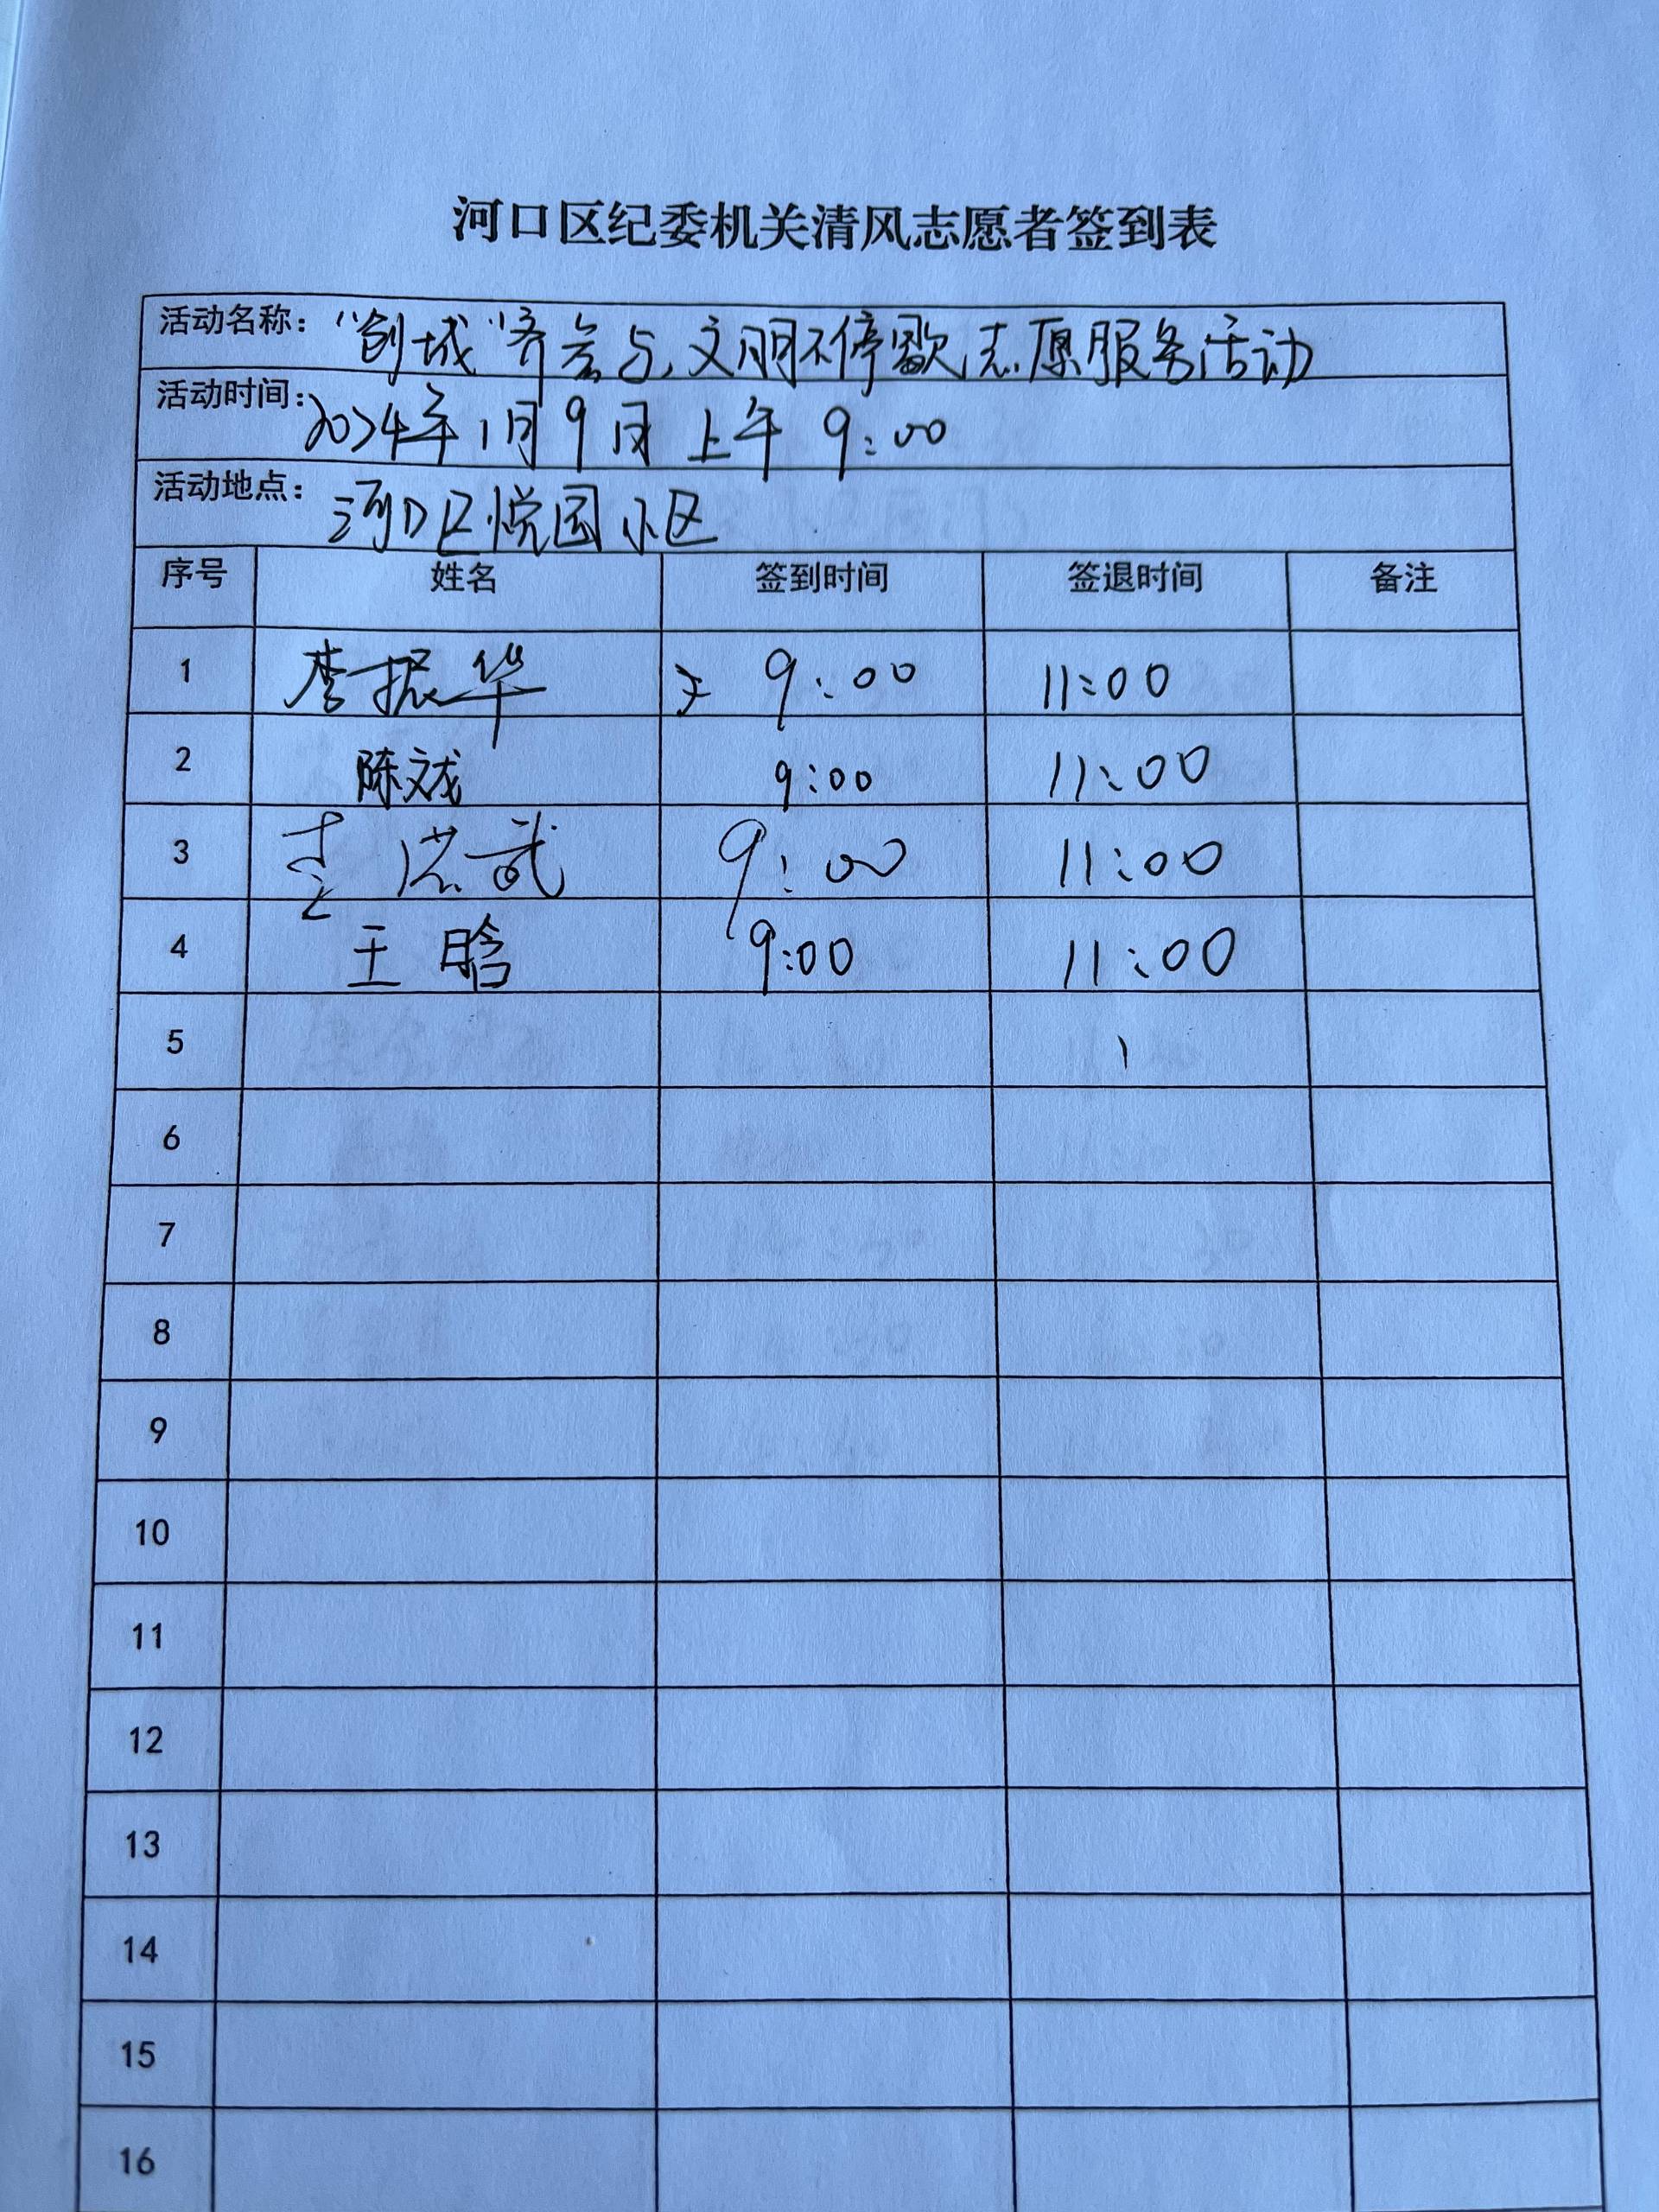 河口区纪委机关清风志愿者签到表
活动名称：“创城”齐参与，文明不停歇志愿服务活动
活动时间：2024年1月9日上午9:00
活动地点：河口区悦园小区
序号 姓名 签到时间 签退时间 备注
1 李振华 9:00 11:00
2 陈文龙 9:00 11:00
3 李洪武 9:00 11:00
4 王晗 9:00 11:00
5
6
7
8
9
10
11
12
13
14
15
16